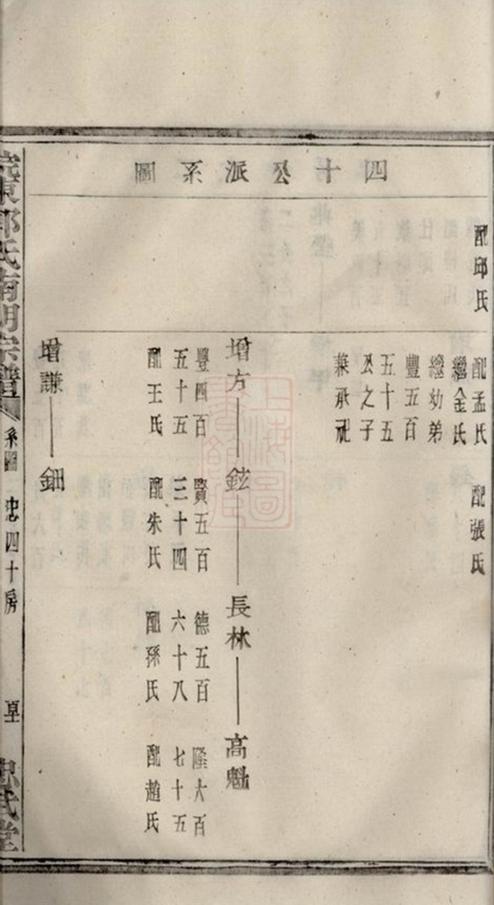 四十公派系圖
配邱氏
配孟氏
繼金氏
繼幼弟
豐五百
五十五
公之子
兼承祀
配張氏
增方——鉉——長林——高魁
豐四百
五十五
配王氏
賢五百
三十四
配朱氏
德五百
六十八
配孫氏
隆大百
七十五
配趙氏
增謙——鈿
氏南湖宗譜
系圖 忠四十房
忠武堂